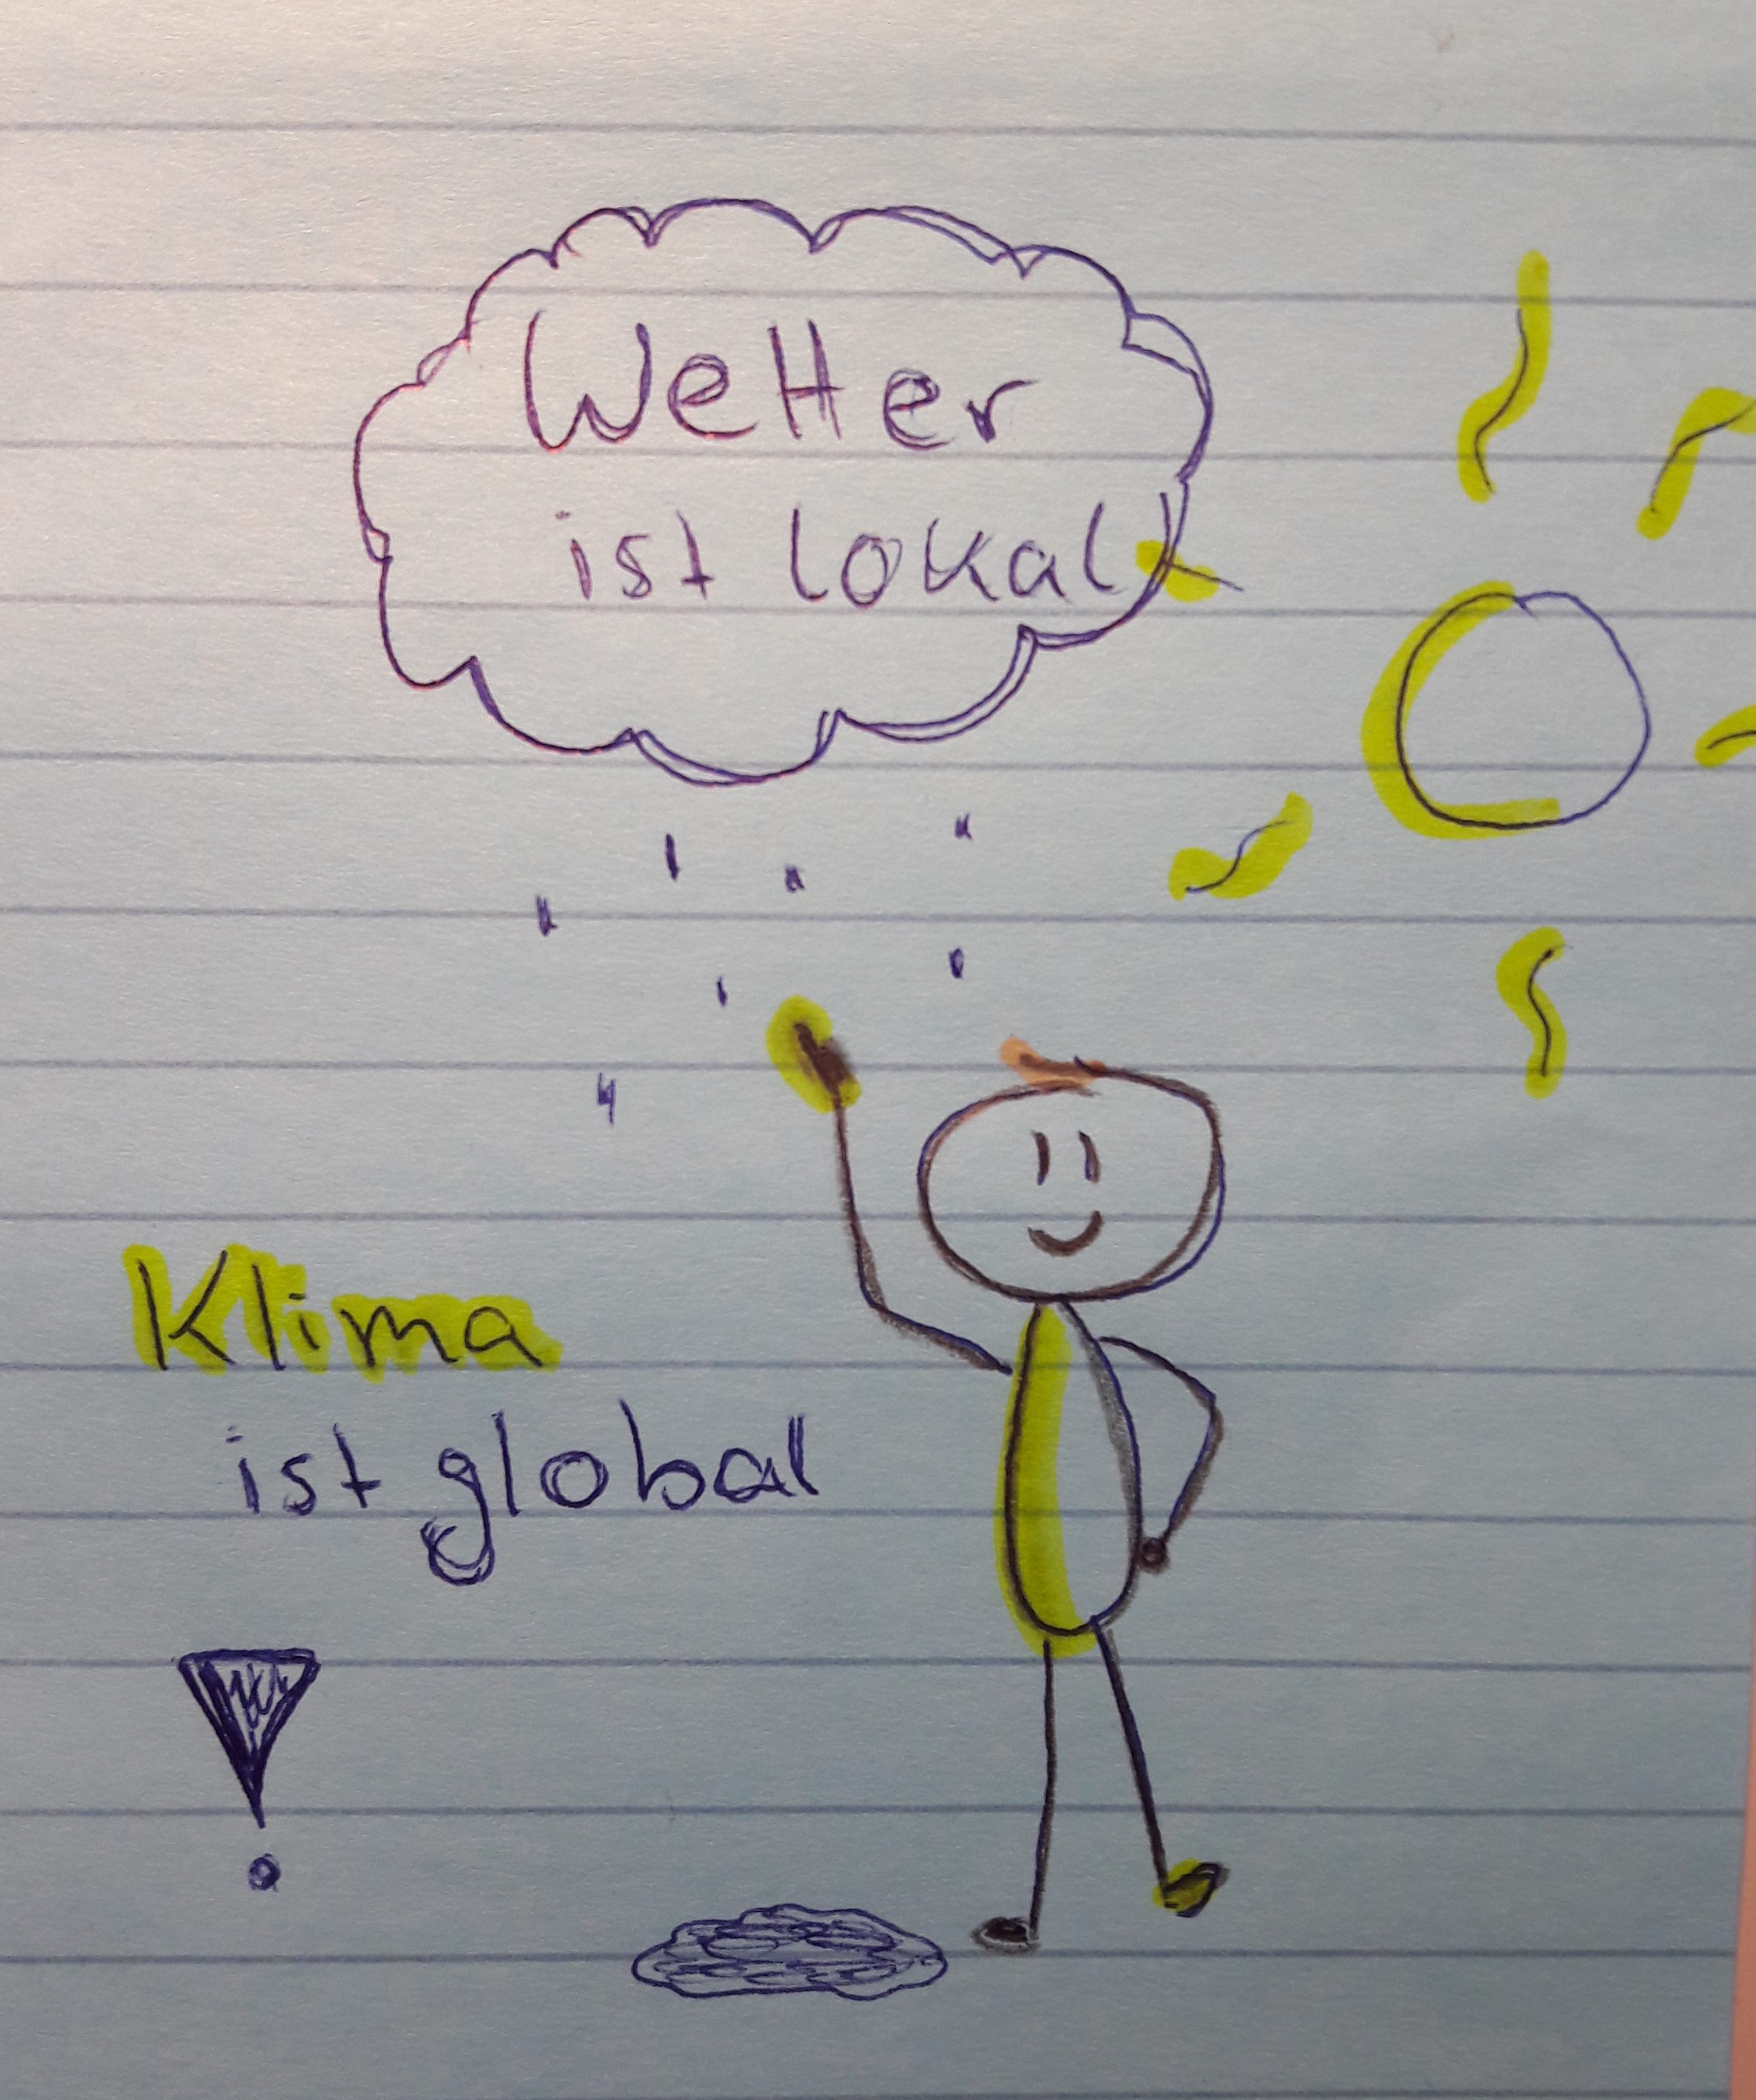 Wetter
ist lokal
Klima
ist global
!